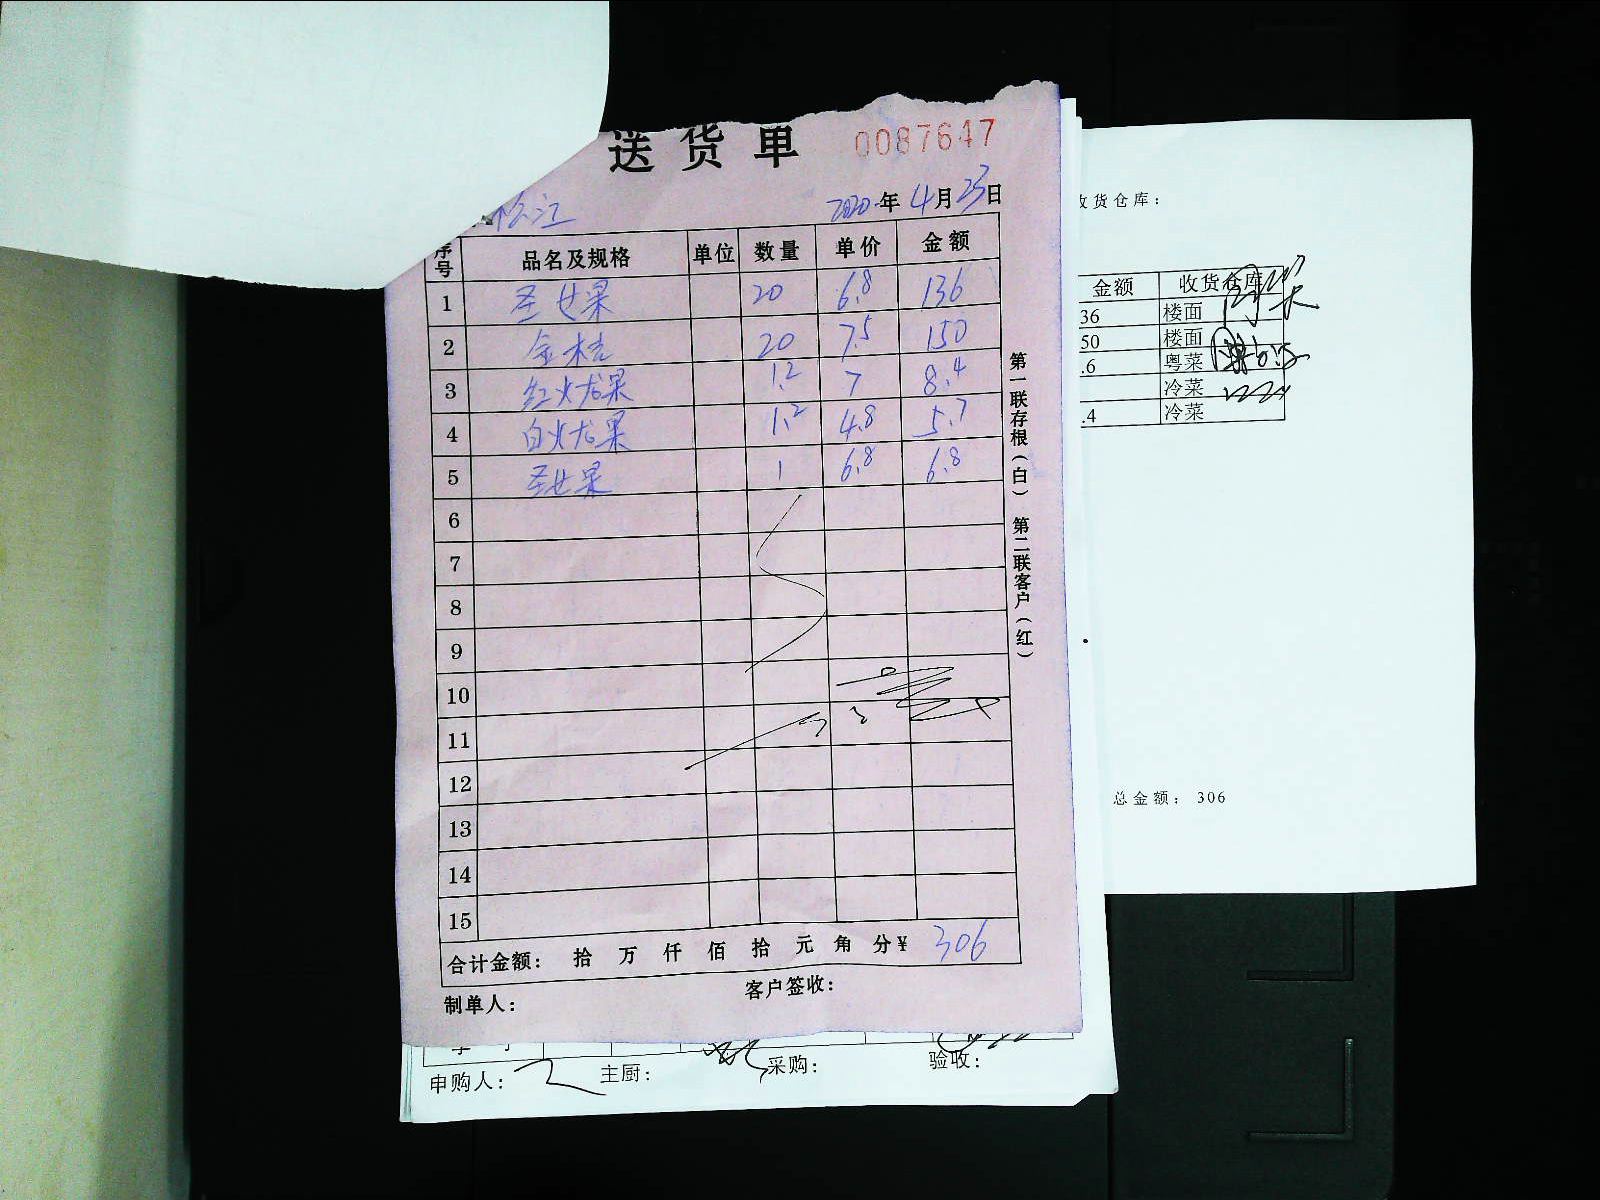 送货单 0087647
松江 2020年4月23日
序号 品名及规格 单位 数量 单价 金额
1 圣女果 20 6.8 136
2 金桔 20 7.5 150
3 红火龙果 1.2 7 8.4
4 白火龙果 1.2 4.8 5.7
5 圣女果 1 6.8 6.8
6
7
8
9
10
11
12
13
14
15
合计金额: 拾 万 仟 佰 拾 元 角 分¥ 306
制单人: 客户签收:
第一联存根(白) 第二联客户(红)
申购人: 主厨: 采购: 验收:
收货仓库:
金额 收货仓库
36 楼面
50 楼面
.6 粤菜
冷菜
.4 冷菜
总金额: 306